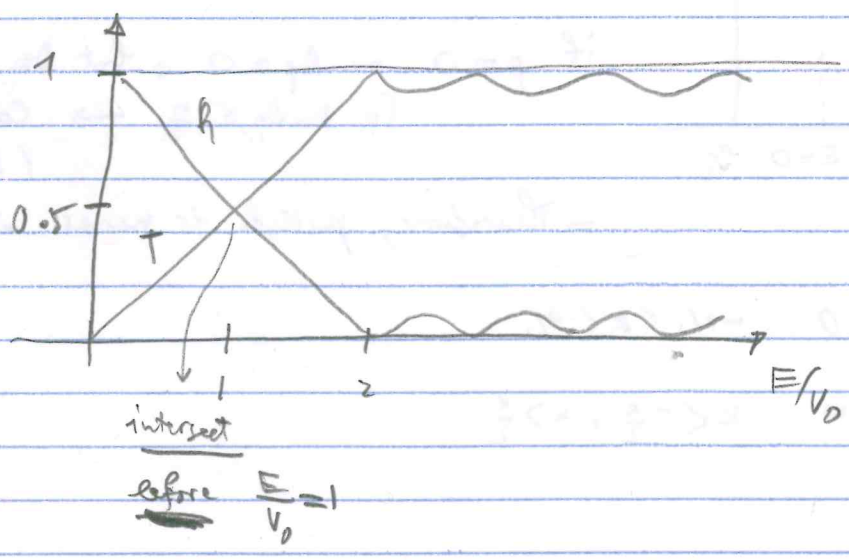 1
R
0.5
T
1
2
E/V0
intersect
before E/V0 = 1